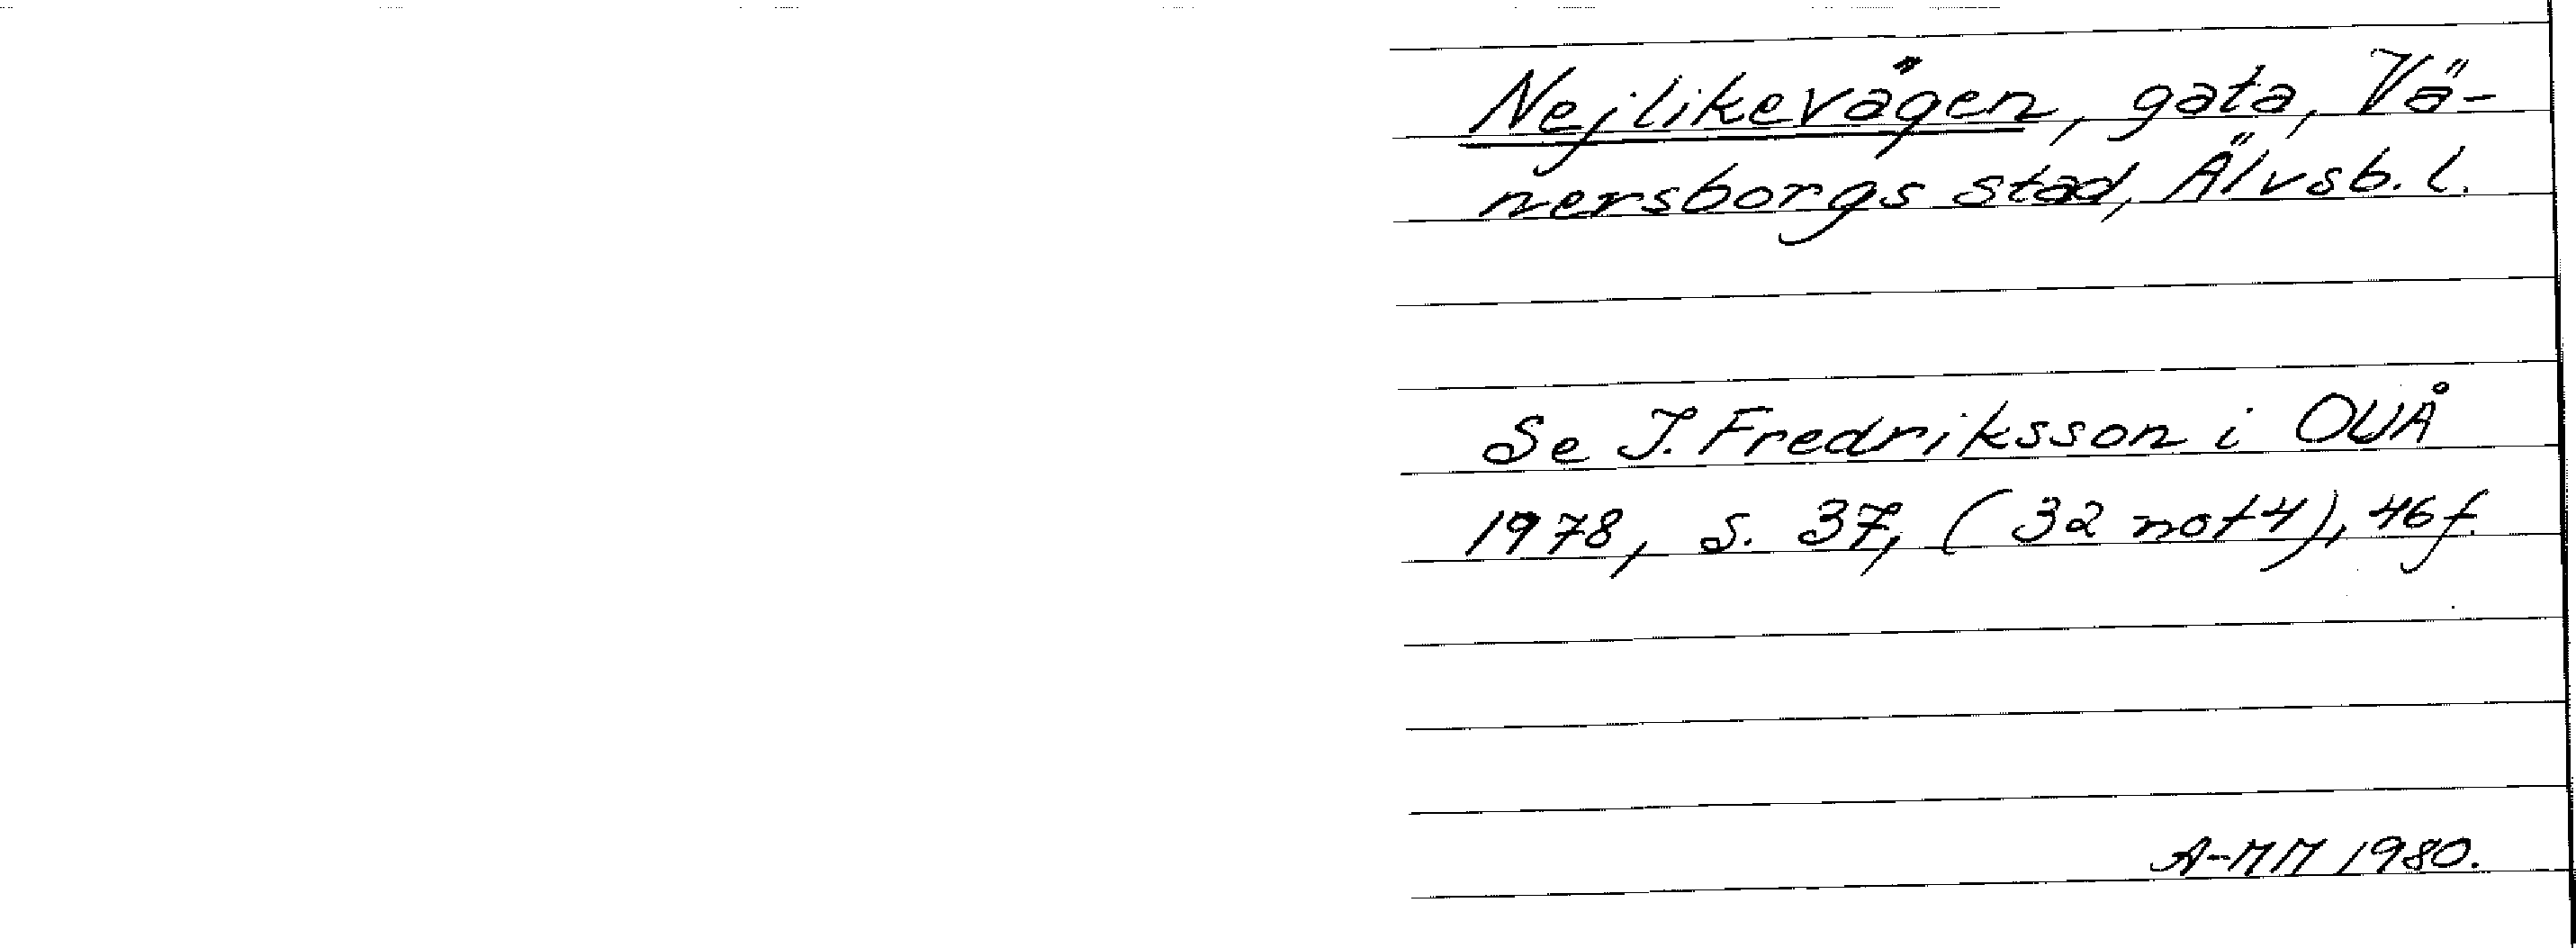 Nejlikevägen, gata, Vä-
nersborgs stad, Älvsb. l.
Se I. Fredriksson i OUÅ
1978, s. 37, (32 not 4), 46 f.
A-MM 1980.